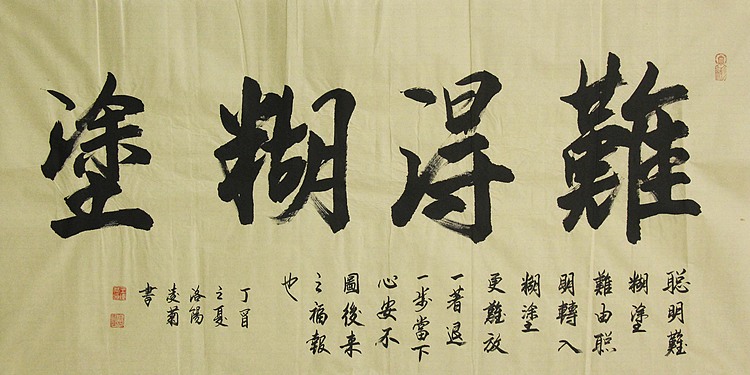 難得糊塗
聪明難
糊塗
難由聪
明轉入
糊塗
更難放
一著退
一步當下
心安不
圖後来
之福報
也
丁酉
之夏
洛陽
凌菊
書